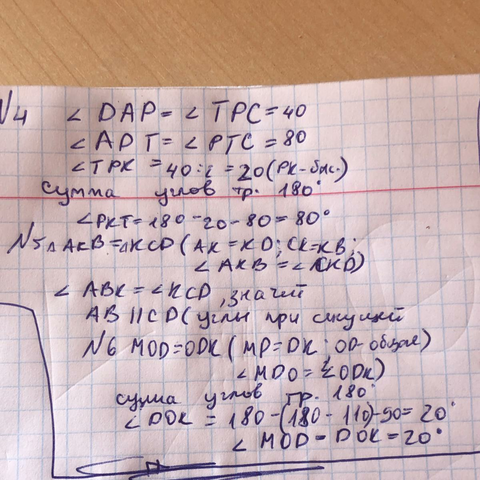 N4 ∠ DAP = ∠ TPC = 40
∠ ADT = ∠ PTC = 80
∠TPK = 40:2 = 20 (PK-бис.)
сумма углов тр. 180°
∠PKT = 180-20-80 = 80°
N5 △AKB = △KCD (AK = KD; CK = KB;
∠ AKB = ∠CKD)
∠ ABK = ∠KCD, значит
AB || CD (углы при секущей
N6 MOD = ODK (MD = DK; OD-общая)
∠MDO = ∠ODK)
сумма углов тр. 180°
∠DOK = 180-(180-110)-90 = 20°
∠ MOD = DOK = 20°